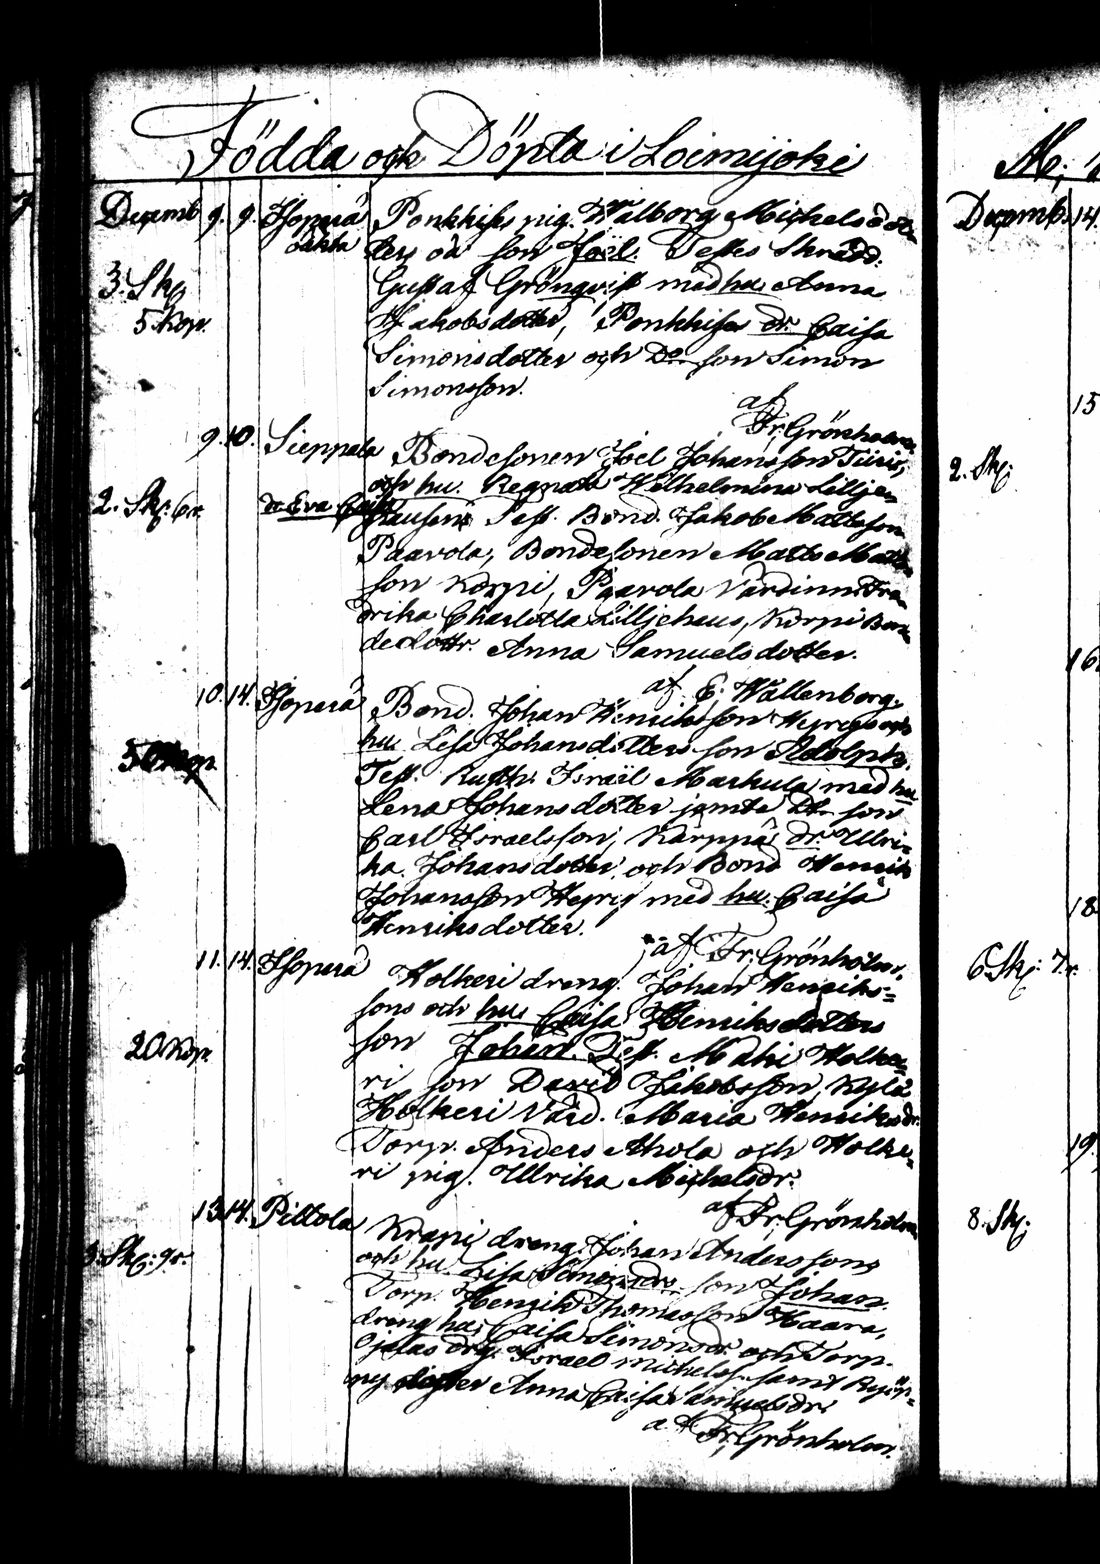 Födda och Döpta i Loimijoki
Decemb. 9. 9. Ylöperä Ponkkisk pig. Walborg Michelsdot-
oäkta ters oä son Joël. Testes Skrädd.
3. Skg Gustaf Grönqvist med hu. Anna
5 kop. Jakobsdotter, Ponkkiser dr. Caisa
Simonsdotter och Do son Simon
Simonsson.
af
Fr. Grönholm
9. 10. Sieppala Bondesonen Joel Johansson
och hu. Wilhelmina Lillje
2. Skg: 6r. dr Eva Caisa Test. Bond. Jakob Mattsson
Paavola, Bondesonen Matts Matts
son Korpi, Paavola Värdinn. Fre-
drika Charlotta Lilljehaus, Korpi Bon-
dedottr. Anna Samuelsdotter.
af E. Wallenborg.
10. 14. Bond. Johan Henriksson
hu. Lisa Johansdotters son Adolph.
Test. Israël Markula med hu
Lena Johansdotter jemte son
Carl Israelsson, Kärppä dr. Ulri-
ka Johansdotter, och Bond Henrik
Johansson med hu. Caisa
Henriksdotter.
af Fr. Grönholm.
11. 14. Holkeri dreng. Johan Henriks-
sons och hus Caisa Henriksdotters
20 kop. son Johan. Test. Holke-
ri son David Jakobsson, Kylä
Holkeri Värd. Maria Henriksdr.
Torp. Anders Ahola och Holke-
ri pig. Ulrika Michelsdr.
af Fr. Grönholm
13. 14. Piltola Krapi dreng. Johan Anderssons
3. Skg: 9r. och hu. Lisa Simonsdrs son Johan.
Torp. Henrik Thomasson Haara,
dreng hu. Caisa Simonsdr. och Torp.
Ojalas drg. Israel Michelss. samt
Anna Caisa Samuelsdr.
af Fr. Grönholm.
M.
Decemb. 14.
15
2. Skg:
16
18
6 Skg: 7r.
19.
8. Skg: